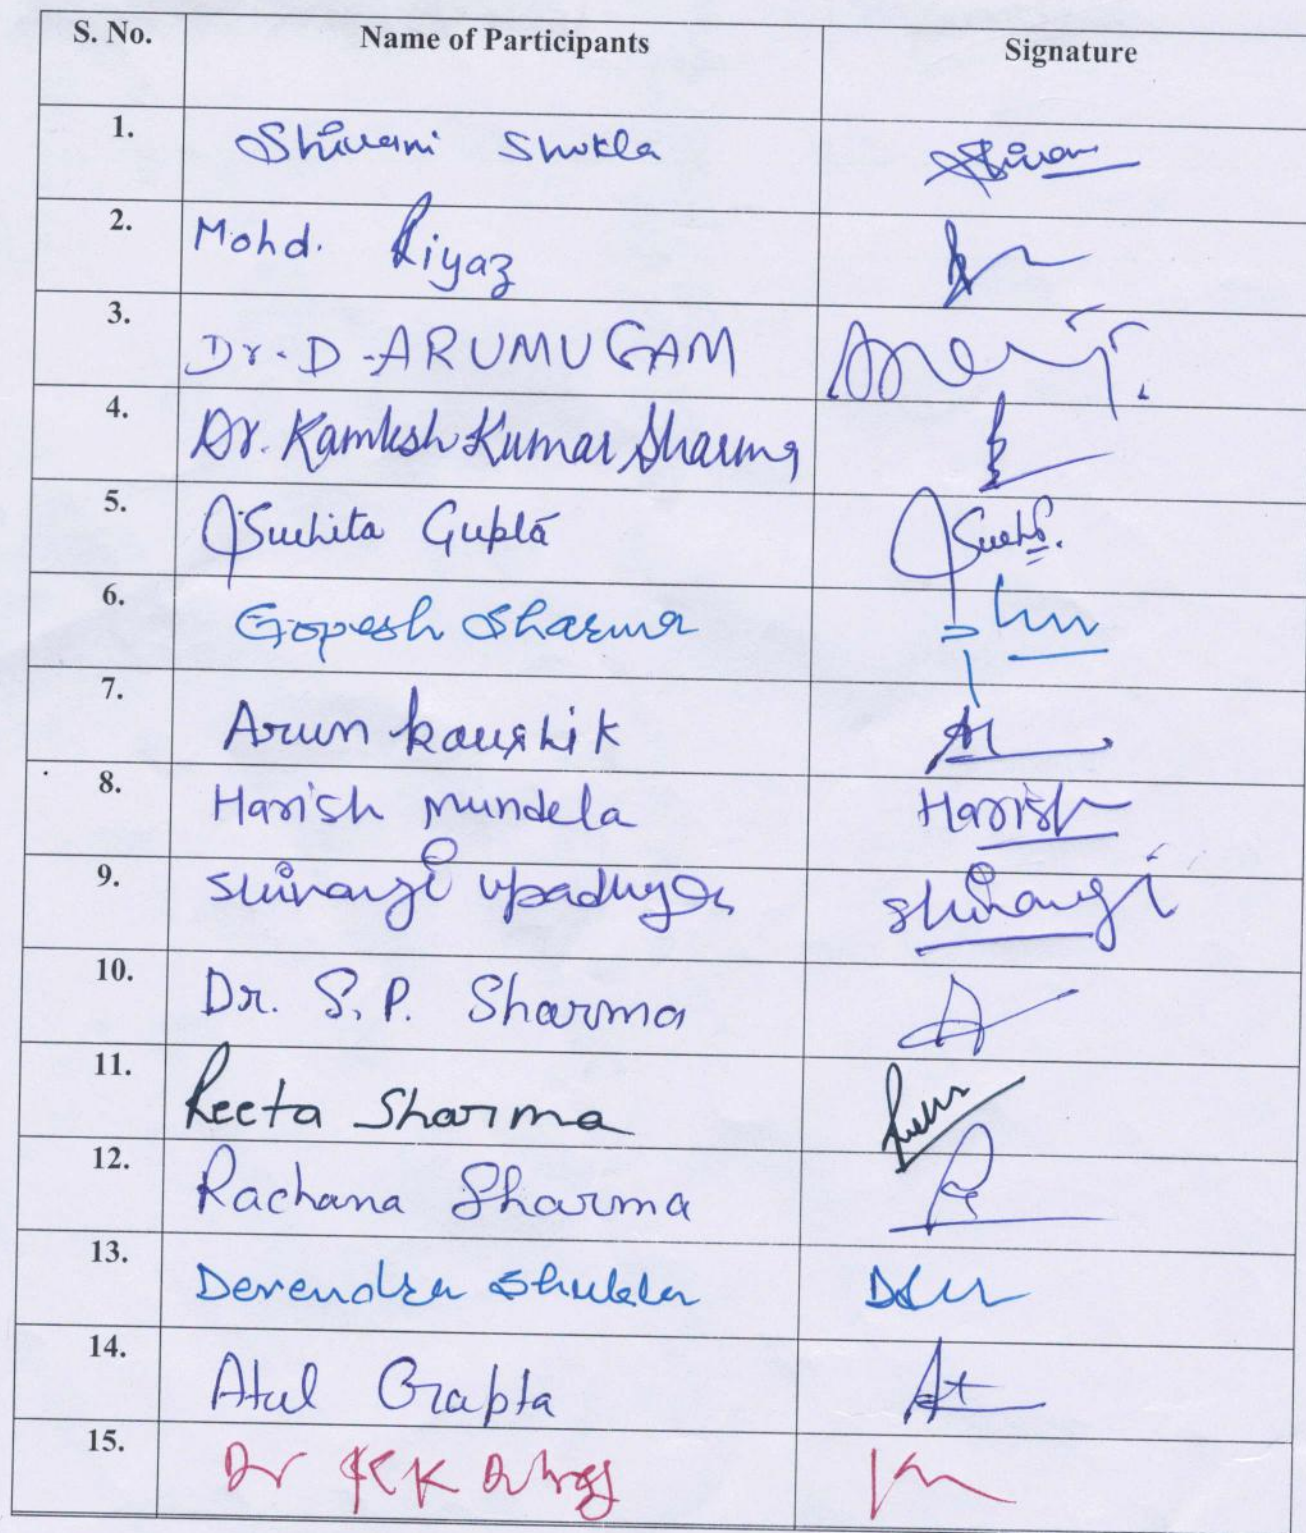 S. No. Name of Participants Signature
1. Shivani Shukla Shivani
2. Mohd. Riyaz
3. Dr. D. ARUMUGAM
4. Dr. Kamlesh Kumar Sharma
5. Suchita Gupta
6. Gopesh Sharma
7. Arun kaushik
8. Harish Mundela Harish
9. Shivangi Upadhyay Shivangi
10. Dr. S. P. Sharma
11. Reeta Sharma
12. Rachana Sharma
13. Devendra Shukla
14. Atul Gupta
15. Dr KK